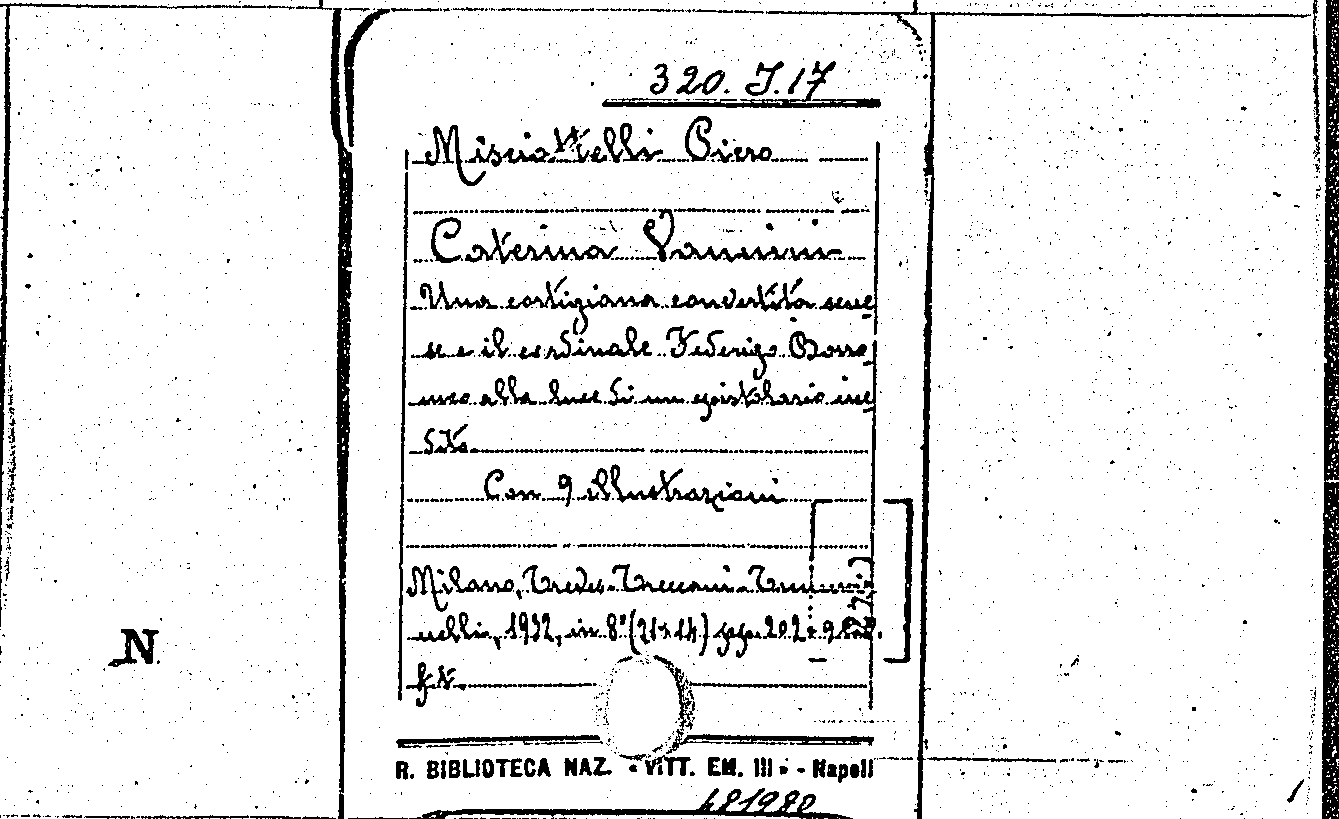 320. J.17
Misciattelli Piero
Caterina Vannini
Una cortigiana convertita sene
se e il cardinale Federigo Borro
meo alla luce di un epistolario ine
dito.
Con 9 illustrazioni
Milano, Treves-Treccani-Tummi
nelli, 1932, in 8° (21x14) pgg. 202 + 9 tav.
f.t.
N
R. BIBLIOTECA NAZ. - VITT. EM. III - - Napoli
481980